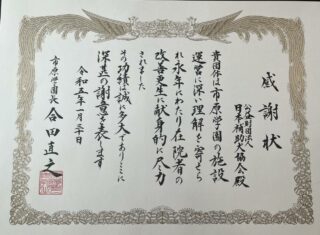 感謝状
公益財団法人
日本補助犬協会殿
貴団体は市原学園の施設
運営に深い理解を寄せら
れ永年にわたり在院者の
改善更生に献身的に尽力
されました
その功績は誠に多大でありここに
深甚の謝意を表します
令和五年
市原学園長 合田直之